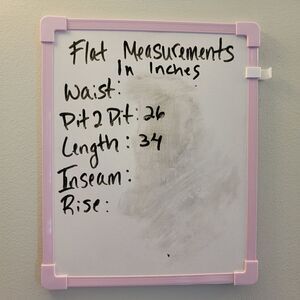 Flat Measurements
In Inches
Waist:
Pit 2 Pit: 26
Length: 34
Inseam:
Rise: